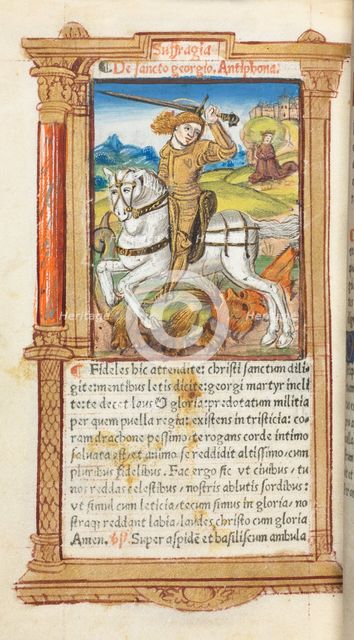 Suffragia
De sancto georgio. Antiphona.
Fideles hic attendite: christi sanctum dili
gite: mentibus letis dicite: georgi martyr incli
te: te decet laus & gloria: predotatum militia
per quem puella regia: existens in tristicia: co
ram drachone pessimo: te rogans corde intimo
saluata est / et animo se reddidit altissimo / cum
pluribus fidelibus. Fac ergo sic vt ciuibus / tu
nos reddas celestibus / nostris ablutis sordibus:
vt simul cum leticia / tecum simus in gloria / no
straq3 reddant labia / laudes christo cum gloria
Amen. Super aspidē et basiliscum ambula